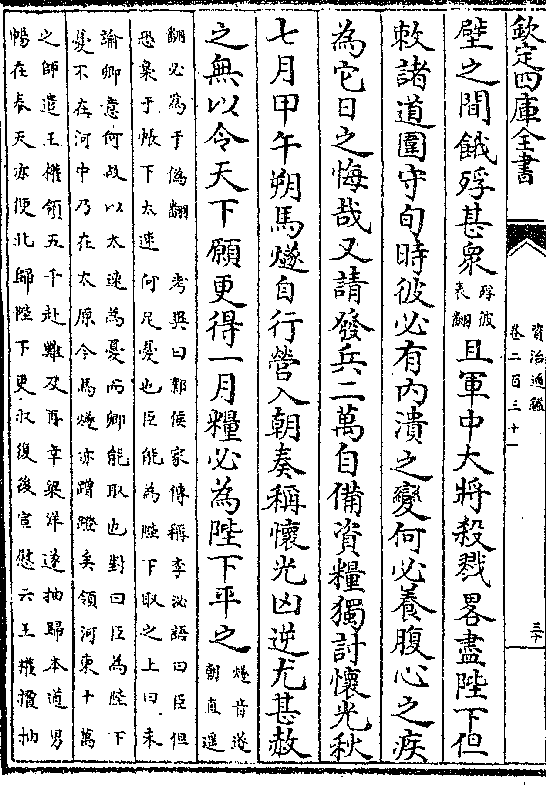 欽定四庫全書
資治通鑑
卷二百三十一
三十
壁之間餓殍甚衆殍彼表翻且軍中大將殺戮畧盡陛下但
敕諸道圍守旬時彼必有内潰之變何必養腹心之疾
為它日之悔哉又請發兵二萬自備資糧獨討懷光秋
七月甲午朔馬燧自行營入朝奏稱懷光凶逆尤甚赦
之無以令天下願更得一月糧必為陛下平之燧音遂朝直遥
翻必為于偽翻 考異曰鄴侯家傳稱李泌語曰臣但
恐梟于帳下太速何足憂也臣能為陛下取之上曰未
諭卿意何故以太速為憂而卿能取也對曰臣為陛下
憂不在河中乃在太原今馬燧亦蹭蹬矣領河東十萬
之師遣王權領五千赴難及再幸梁洋遂抽歸本道男
暢在奉天亦便北歸陛下更收復後宣慰云王權擅抽